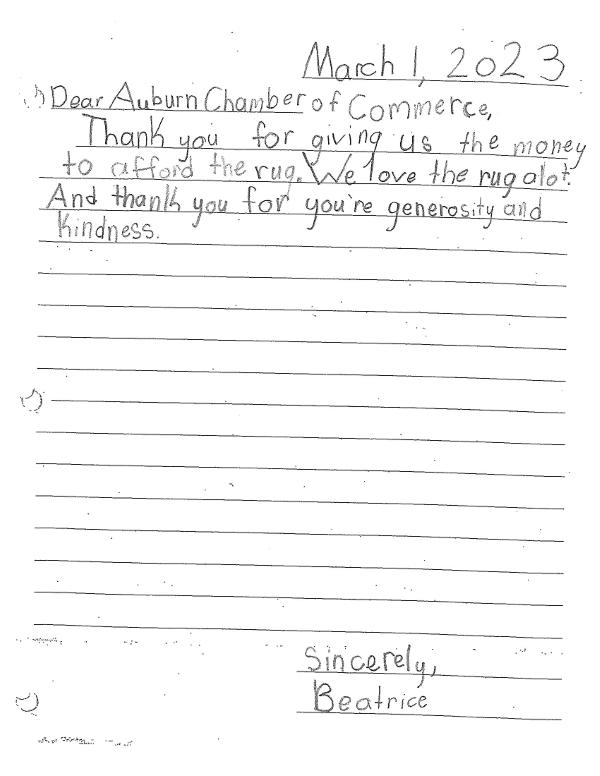 March 1, 2023
Dear Auburn Chamber of Commerce,
Thank you for giving us the money
to afford the rug. We love the rug alot.
And thank you for you're generosity and
kindness.
Sincerely,
Beatrice